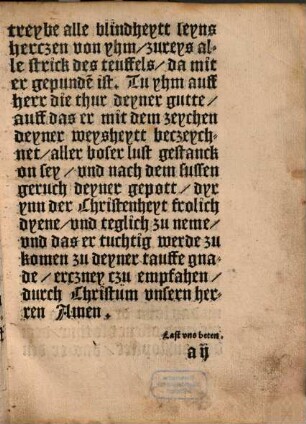 treybe alle blindheytt seyns
herczen von yhm/zureys al-
le strick des teuffels/da mit
er gepundē ist. Tu yhm auff
herr die thur deyner gutte/
auff das er mit dem zeychen
deyner weysheytt beczeych-
net/aller boser lust gestanck
on sey/vnd nach dem sussen
geruch deyner gepott/dyr
ynn der Christenheyt frolich
dyene/vnd teglich zu neme/
vnd das er tuchtig werde zu
komen zu deyner tauffe gna-
de/erczney czu empfahen/
durch Christum vnsern her-
ren Amen.
Last vns beten.
a ij